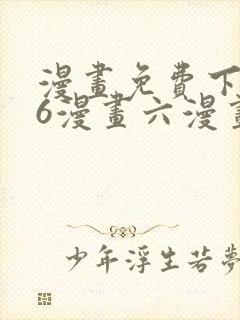 漫畫免費下
6漫畫六漫畫
少年浮生若夢